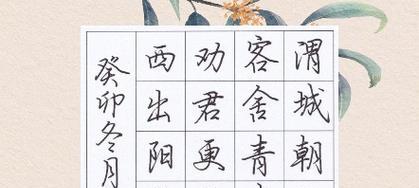 渭城朝
客舍青
劝君更
西出阳
癸卯冬月